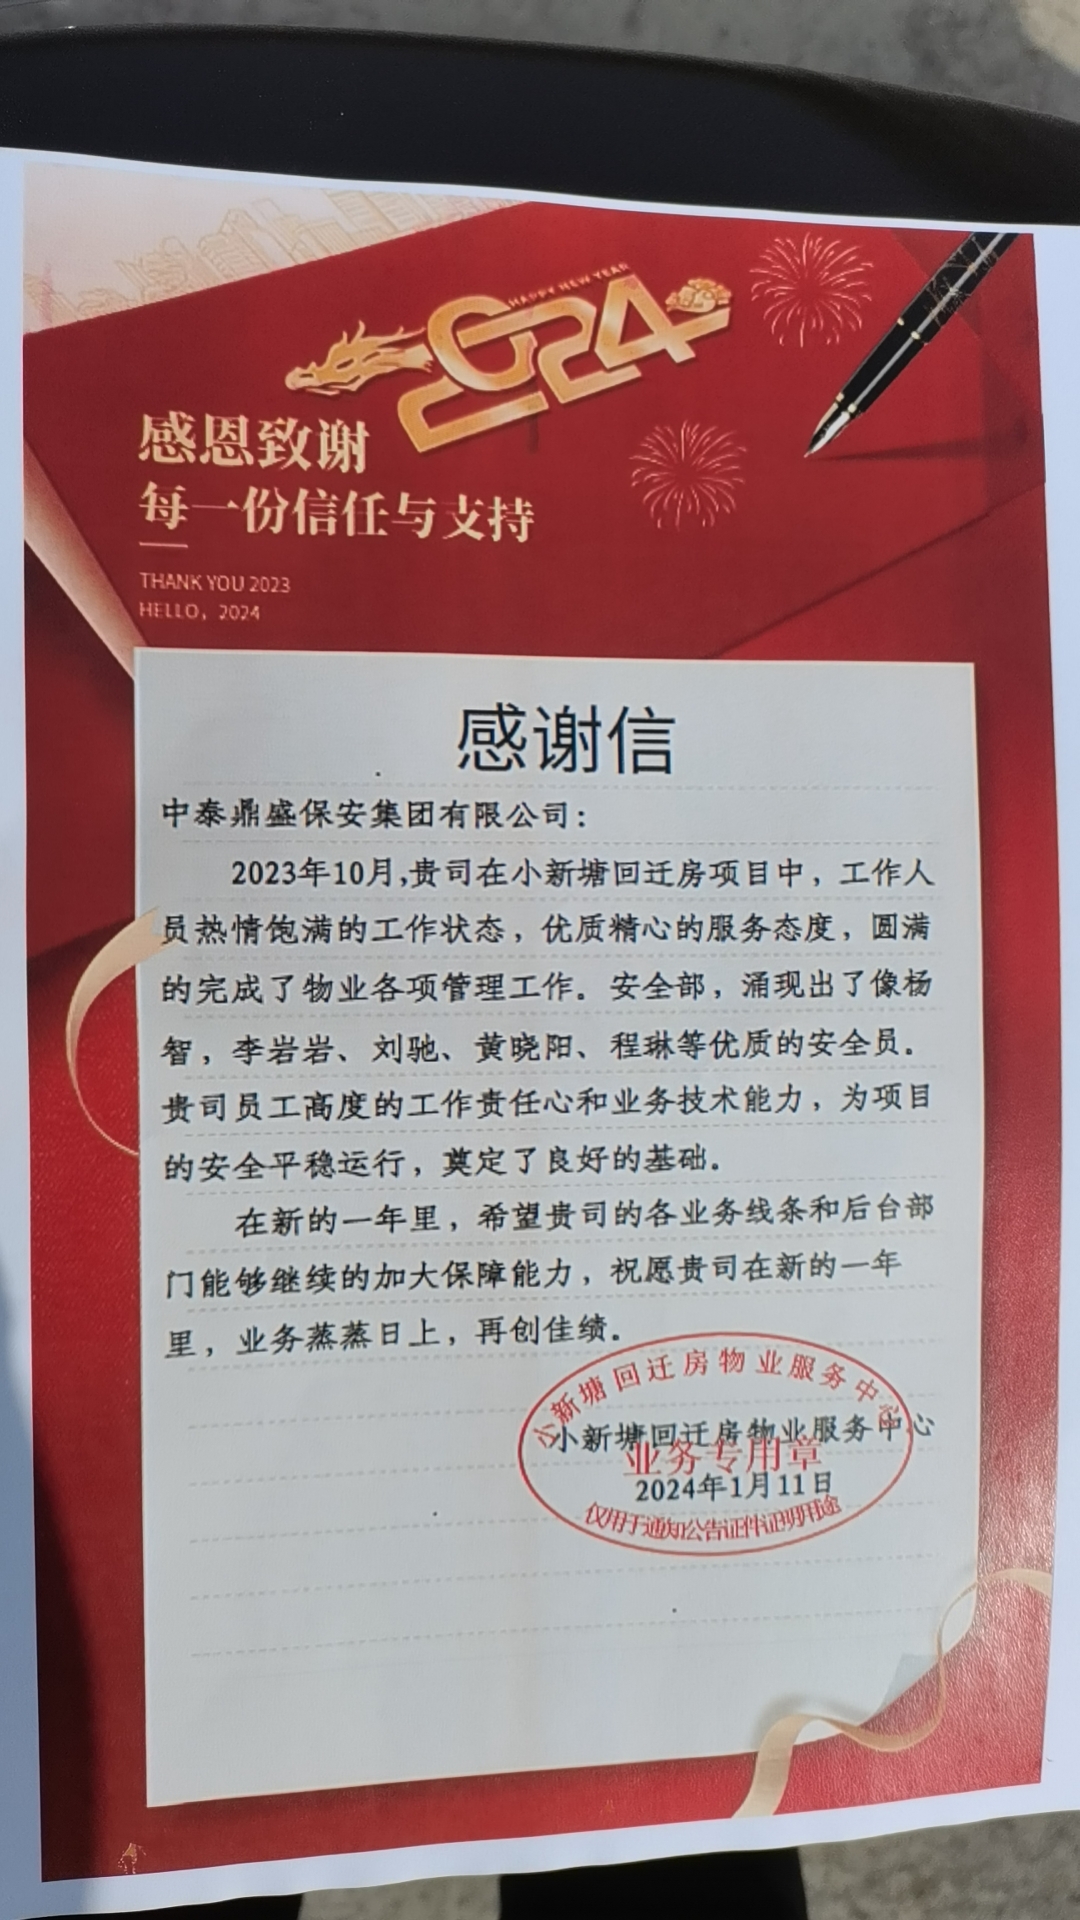 HAPPY NEW YEAR
2024
感恩致谢
每一份信任与支持
THANK YOU 2023
HELLO，2024
感谢信
中泰鼎盛保安集团有限公司：
2023年10月,贵司在小新塘回迁房项目中，工作人
员热情饱满的工作状态，优质精心的服务态度，圆满
的完成了物业各项管理工作。安全部，涌现出了像杨
智，李岩岩、刘驰、黄晓阳、程琳等优质的安全员。
贵司员工高度的工作责任心和业务技术能力，为项目
的安全平稳运行，奠定了良好的基础。
在新的一年里，希望贵司的各业务线条和后台部
门能够继续的加大保障能力，祝愿贵司在新的一年
里，业务蒸蒸日上，再创佳绩。
小新塘回迁房物业服务中心
小新塘回迁房物业服务中心
业务专用章
2024年1月11日
仅用于通知公告证件证明用途